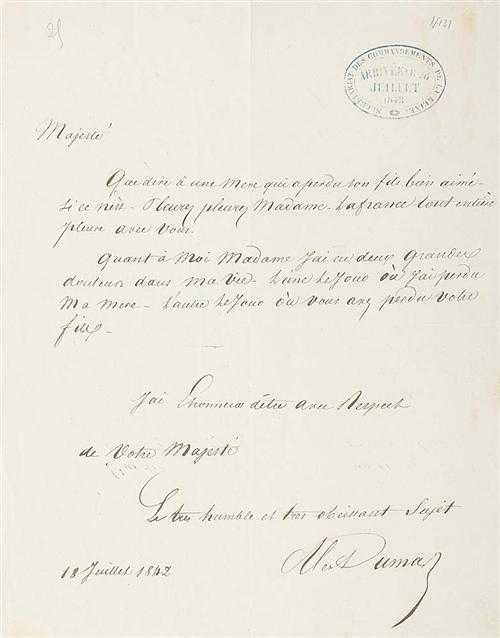 25
SECRÉTARIAT DES COMMANDEMENTS DE LA REINE
ARRIVÉE LE 20
JUILLET
1842
Majesté
Que dire à une Mere qui a perdu son fils bien aimé
Si ce n'est - Pleurez pleurez Madame - La france tout entière
pleure avec Vous.
Quant à Moi Madame J'ai eu deux Grandes
douleurs dans Ma Vie - L'une Le Jour où J'ai perdu
Ma Mere - L'autre Le Jour où Vous avez perdu Votre
fils -
J'ai L'honneur d'être avec Respect
de Votre Majesté
Le très humble et très obéissant Sujet
Alex Dumas
18 Juillet 1842